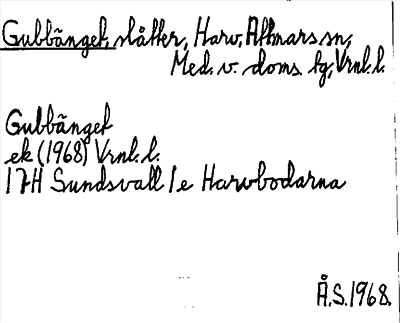 Gubbänget, slåtter, Harv, Attmars sn,
Med. v. doms. tg, Vrnl. l.
Gubbänget
ek (1968) Vrnl. l.
17H Sundsvall 1e Harvbodarna
Å.S. 1968.